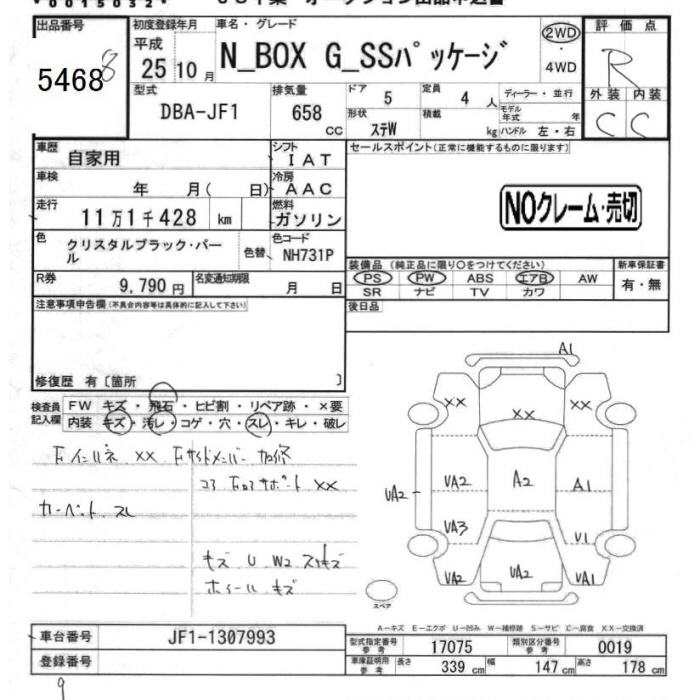 0015032
出品番号
5468
8
初度登録年月
平成
25年10月
車名・グレード
N_BOX G_SSパッケージ
2WD
・
4WD
評価点
R
外装 内装
C C
型式
DBA-JF1
排気量
658
CC
ドア 5
定員 4 人
形状 ステW
積載 kg
ディーラー・並行
モデル年式 年
ハンドル 左・右
車歴 自家用
シフト IAT
セールスポイント(正常に機能するものに限ります)
車検 年 月( 日)
冷房 AAC
NOクレーム・売切
走行 11万1千428 km
燃料 ガソリン
色 クリスタルブラック・パール
色替
色コード NH731P
装備品 (純正品に限り○をつけてください)
新車保証書
PS PW ABS エアB AW
有・無
SR ナビ TV カワ
R券 9,790 円
名変通知期限 月 日
後日品
注意事項申告欄(不具合内容等は具体的に記入して下さい)
修復歴 有〔箇所 〕
検査員記入欄
FW キズ・飛石・ヒビ割・リペア跡・×要
内装 キズ・汚レ・コゲ・穴・スレ・キレ・破レ
Fインパネ ×× Fサイドメンバー 加修
コアFロアサポート ××
カーペット スレ
キズ U W2 スリキズ
ホイール キズ
A1
×× ×× ××
UA2 UA2 A2 A1
UA3 U1
UA2 UA2 UA1
スペア
A-キズ E-エクボ U-凹み W-補修跡 S-サビ C-腐食 XX-交換済
車台番号 JF1-1307993
登録番号
型式指定番号 参考 17075
類別区分番号 参考 0019
車庫証明用 参考 長さ 339 cm 幅 147 cm 高さ 178 cm
9